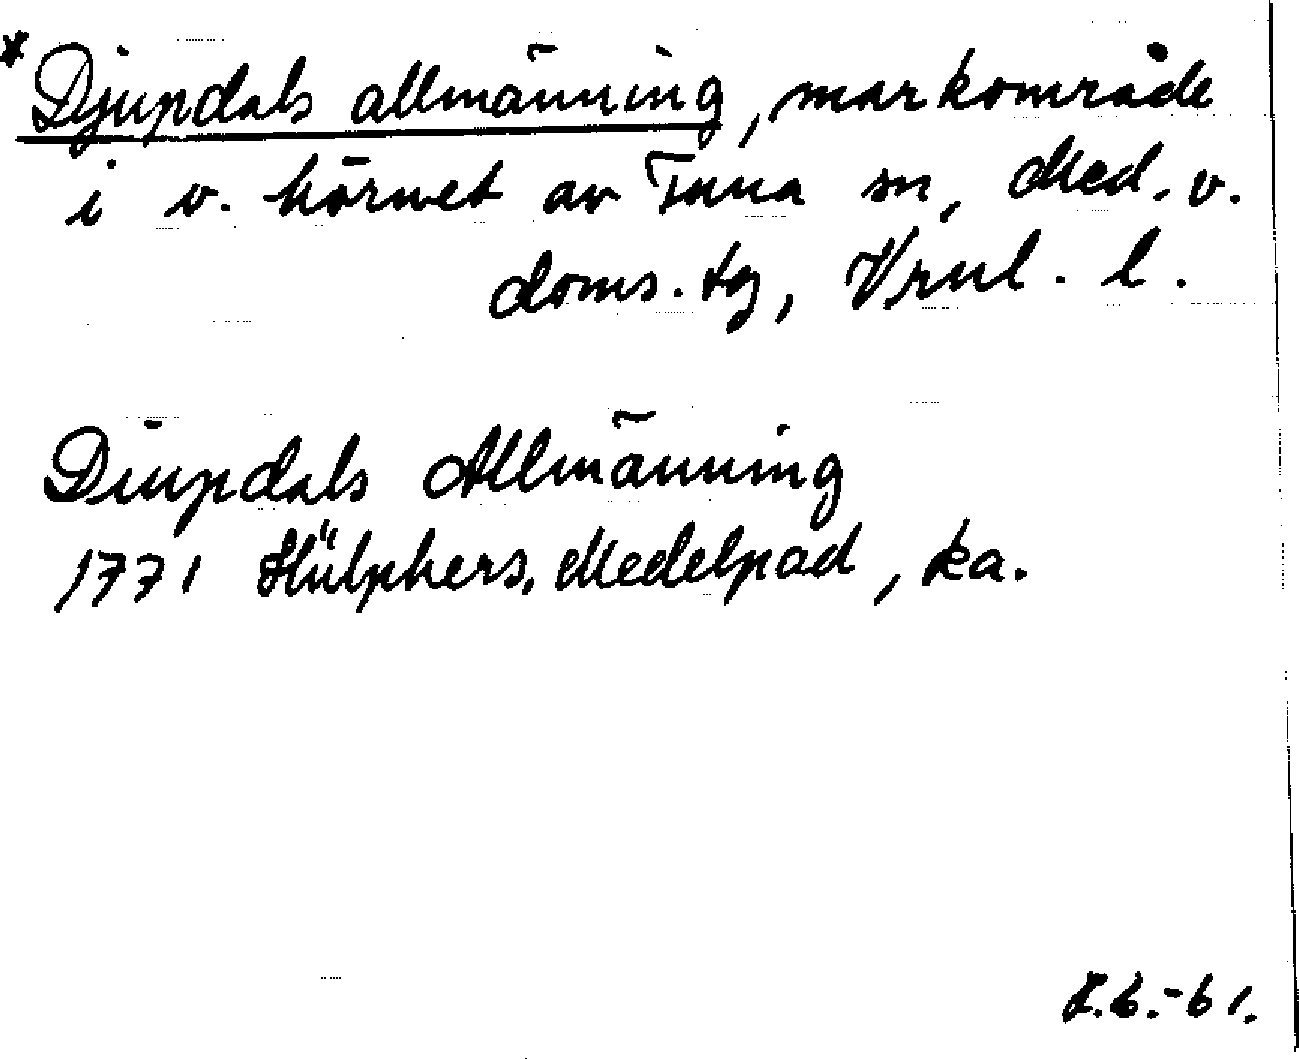 * Djupdals allmänning, markområde
i v. hörnet av Tuna sn, Med. v.
doms. tg, Vrnl. l.
Diupdals Allmänning
1771 Hülphers, Medelpad, ka.
-61.